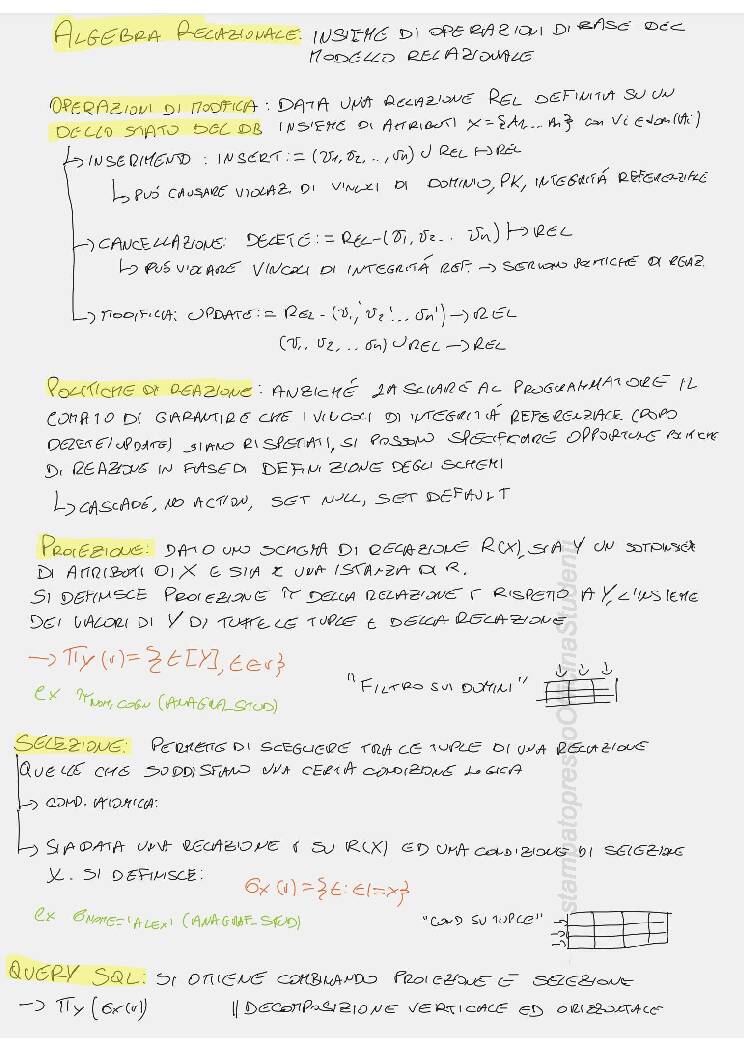 ALGEBRA RELAZIONALE: INSIEME DI OPERAZIONI DI BASE DEL
MODELLO RELAZIONALE
OPERAZIONI DI MODIFICA : DATA UNA RELAZIONE REL DEFINITA SU UN
DELLO STATO DEL DB INSIEME DI ATTRIBUTI X = {A1... An} con Vi ∈ dom(Ai)
↳ INSERIMENTO : INSERT := (v1, v2, .., vn) ∪ REL ↦ REL
↳ PUÓ CAUSARE VIOLAZ. DI VINCOLI DI DOMINIO, PK, INTEGRITÁ REFERENZIALE
→ CANCELLAZIONE: DELETE := REL - (v1, v2 .. vn) ↦ REL
↳ PUÓ VIOLARE VINCOLI DI INTEGRITÁ REF. → SERVONO POLITICHE DI REAZ.
→ MODIFICA: UPDATE := REL - (v1', v2' ... vn') → REL
(v1, v2, ... vn) ∪ REL → REL
POLITICHE DI REAZIONE : ANZICHÉ LASCIARE AL PROGRAMMATORE IL
COMPITO DI GARANTIRE CHE I VINCOLI DI INTEGRITÁ REFERENZIALE (DOPO
DELETE/UPDATE) SIANO RISPETTATI, SI POSSONO SPECIFICARE OPPORTUNE POLITICHE
DI REAZIONE IN FASE DI DEFINIZIONE DEGLI SCHEMI
↳ CASCADE, NO ACTION, SET NULL, SET DEFAULT
PROIEZIONE: DATO UNO SCHEMA DI RELAZIONE R(X), SIA Y UN SOTTOINSIEME
DI ATTRIBUTI DI X E SIA r UNA ISTANZA DI R.
SI DEFINISCE PROIEZIONE π DELLA RELAZIONE r RISPETTO A Y, L'INSIEME
DEI VALORI DI Y DI TUTTE LE TUPLE t DELLA RELAZIONE
→ πy (r) = {t[Y], t∈r}
ex π NOM, COGN (ANAGRAF_STUD)
"FILTRO SUI DOMINI"
SELEZIONE: PERMETTE DI SCEGLIERE TRA LE TUPLE DI UNA RELAZIONE
QUELLE CHE SODDISFANO UNA CERTA CONDIZIONE LOGICA
→ COND. ATOMICA:
↳ SIA DATA UNA RELAZIONE r SU R(X) ED UNA CONDIZIONE DI SELEZIONE
X. SI DEFINISCE: σx (r) = {t : t |= x}
ex σ NOME='ALEX' (ANAGRAF_STUD)
"COND SU TUPLE"
QUERY SQL: SI OTTIENE COMBINANDO PROIEZIONE E SELEZIONE
→ πy (σx(r)) // DECOMPOSIZIONE VERTICALE ED ORIZZONTALE